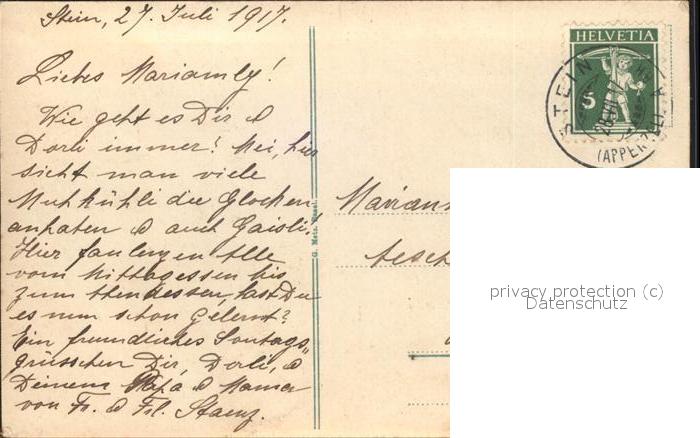 Stein, 27. Juli 1917.
Liebes Mariannly!
Wie geht es Dir &
Dorli immer? Mei, hier
sieht man viele
Muhkühli die Glocken
anhaten & auch Gaisli!
Hier faulenzen Alle
vom Mittagessen bis
zum Abendessen, hast Du
es nun schon gelernt?
Ein freundliches Sontags-
grüsschen Dir, Dorli, &
Deinem Papa & Mama
von Fr. & Frl. Staenz.
G. Metz, Basel.
HELVETIA
5
STEIN
28.VII.17
(APPENZELL)
Mariann
Aesch
privacy protection (c)
Datenschutz